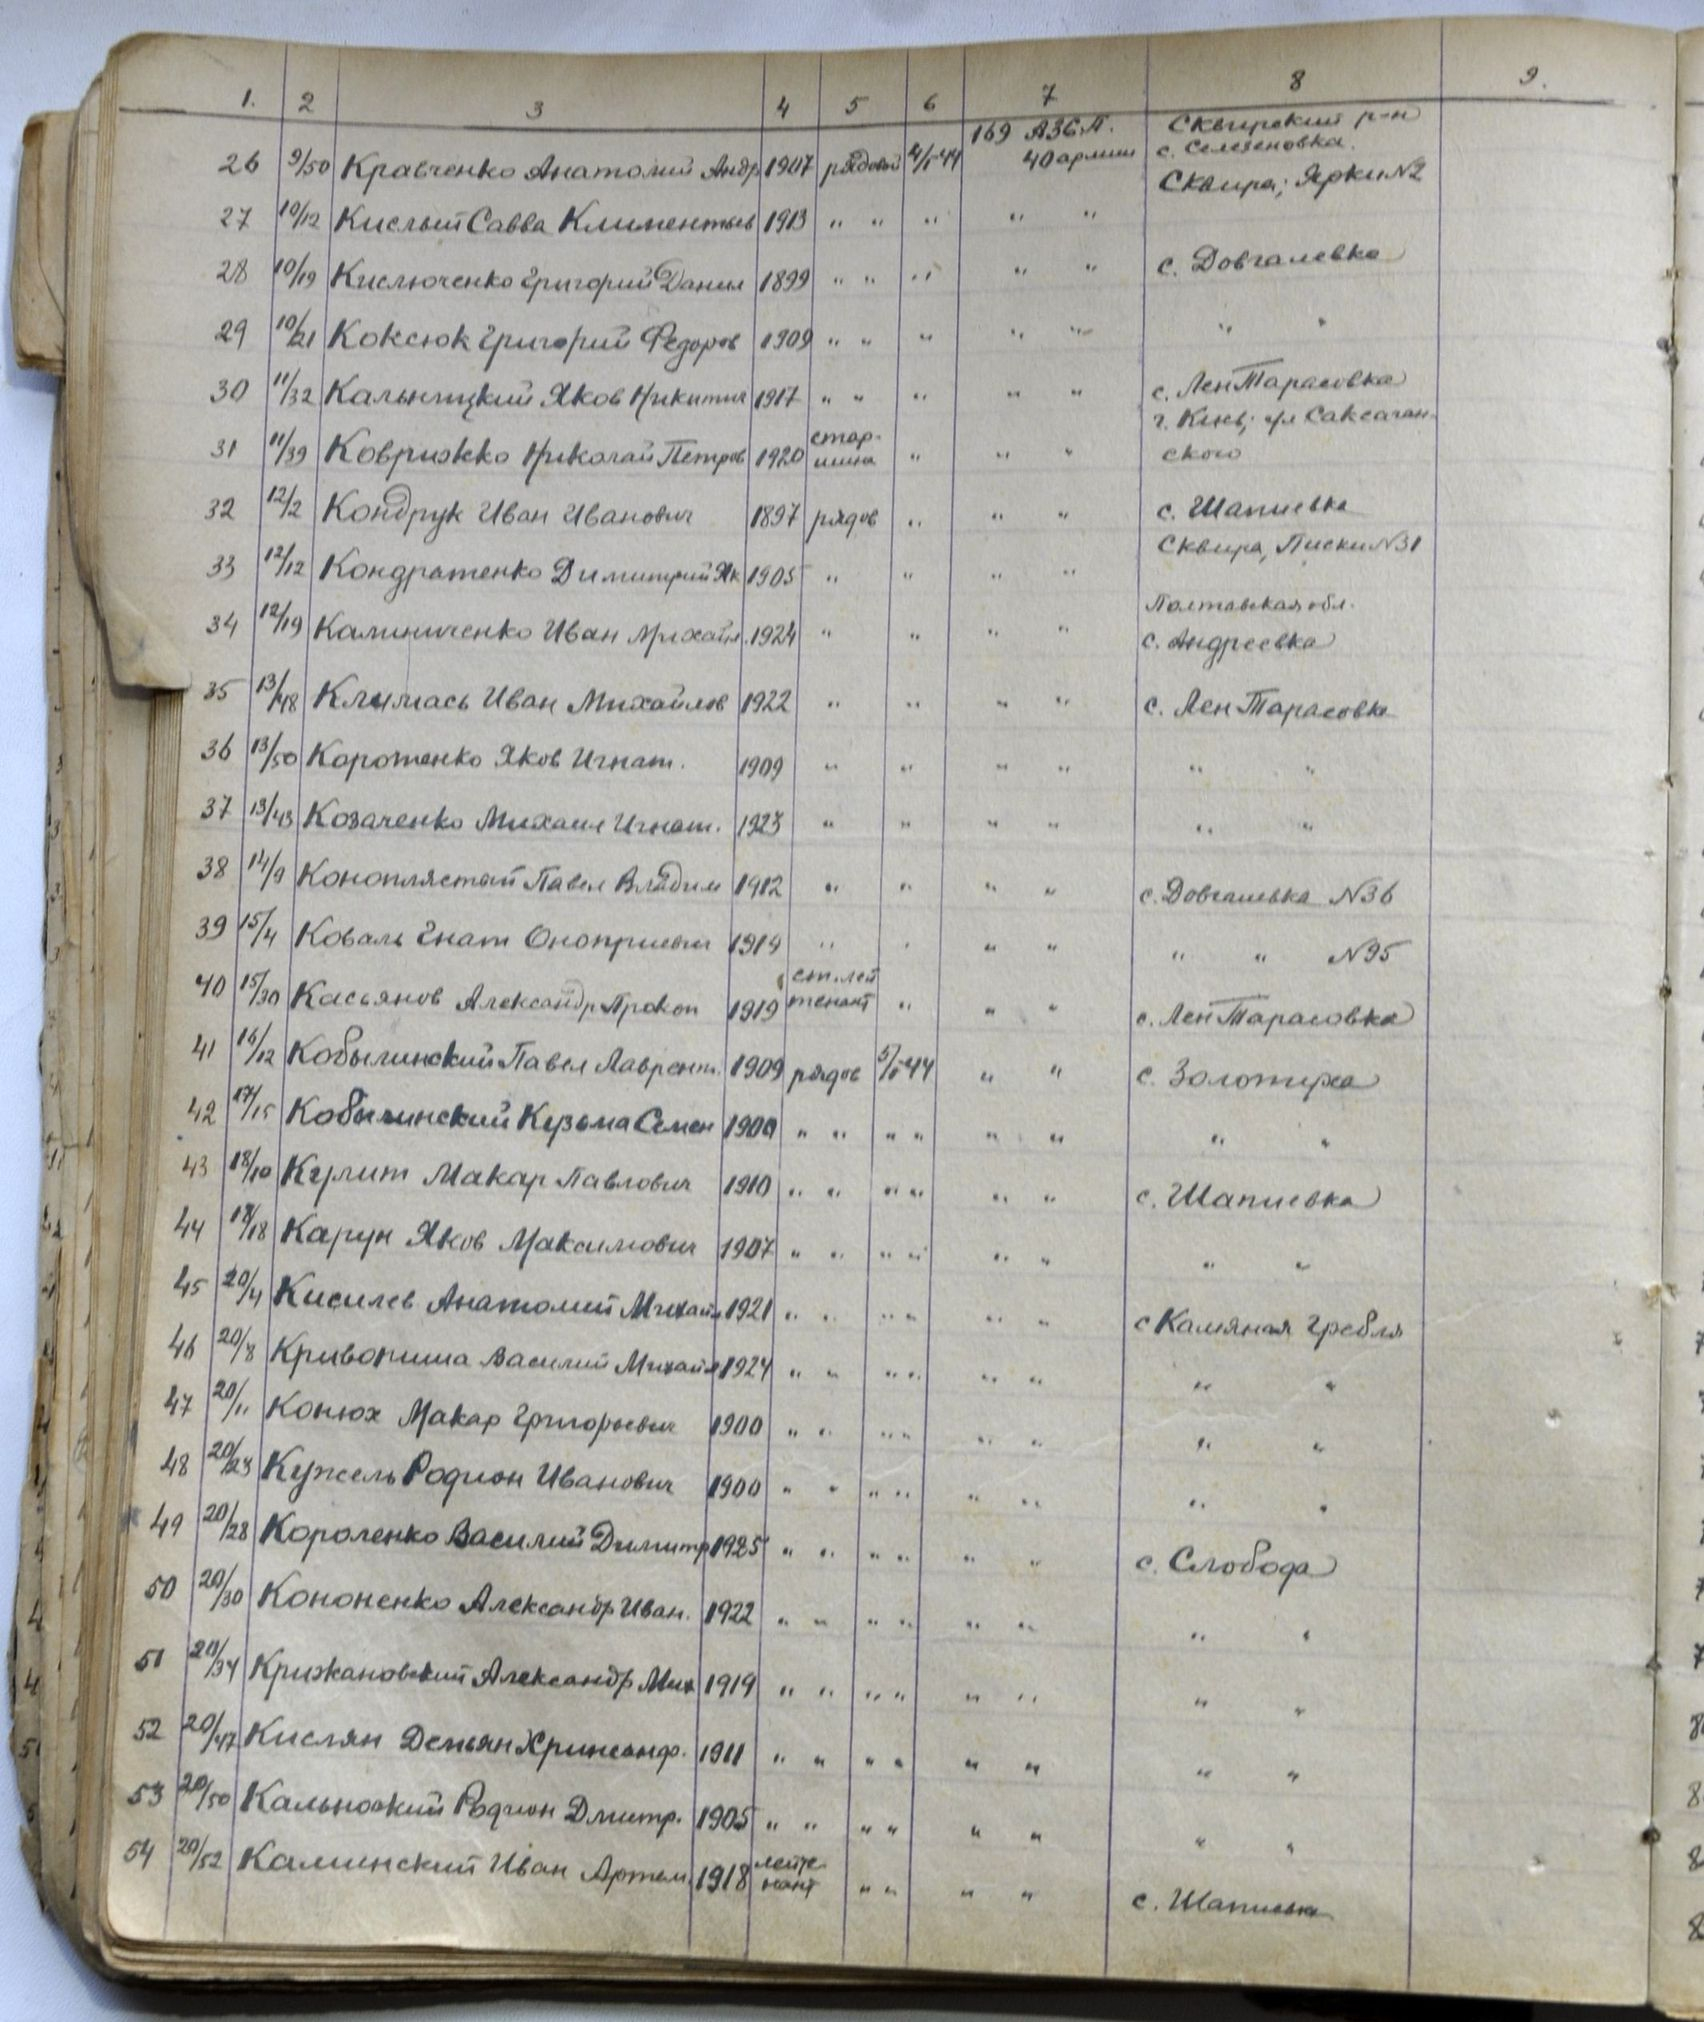 1. 2 3 4 5 6 7 8 9.
26 9/50 Кравченко Анатолий Андр 1907 рядовой 4/I-44 169 АЗСП. 40 армии Сквирский р-н с. Селезеновка.
27 10/12 Кислый Савва Климентьев 1913 " " " " " Сквира; Ярки N2
28 10/19 Кислюченко Григорий Данил 1899 " " " " " с. Довгалевка
29 10/21 Коксюк Григорий Федоров 1909 " " " " " " "
30 11/32 Кальницкий Яков Никитич 1917 " " " " " с. Лен Тарасовка
31 11/39 Коврижко Николай Петров 1920 стар-шина " " " г. Киев; ул Саксаган-ского
32 12/2 Кондрук Иван Иванович 1897 рядов " " " с. Шапиевка
33 12/12 Кондратенко Димитрий Як 1905 " " " " Сквира, Писки N31
34 12/19 Калиниченко Иван Михайл. 1924 " " " " Полтавская обл. с. Андреевка
35 13/48 Климась Иван Михайлов 1922 " " " " с. Лен Тарасовка
36 13/50 Коротенко Яков Игнат. 1909 " " " " " "
37 13/43 Козаченко Михаил Игнат. 1923 " " " " " "
38 14/9 Коноплястый Павел Владим 1912 " " " " с. Довгалевка N36
39 15/4 Коваль Гнат Оноприевич 1914 " " " " " " N95
40 15/30 Касьянов Александр Прокоп 1919 ст. лейтенант " " " с. Лен Тарасовка
41 16/12 Кобылинский Павел Лаврент. 1909 рядов 5/I-44 " " с. Золотуха
42 17/15 Кобылинский Кузьма Семен 1900 " " " " " " " "
43 18/10 Кулит Макар Павлович 1910 " " " " " " с. Шапиевка
44 18/18 Карун Яков Максимович 1907 " " " " " " " "
45 20/4 Кисилев Анатолий Михайл 1921 " " " " " " с Камяная Гребля
46 20/8 Кривошиа Василий Михайл 1924 " " " " " " " "
47 20/11 Конюх Макар Григорьевич 1900 " " " " " " " "
48 20/23 Кужель Родион Иванович 1900 " " " " " " " "
49 20/28 Короленко Василий Димитр 1925 " " " " " " с. Слобода
50 20/30 Кононенко Александр Иван. 1922 " " " " " " " "
51 20/34 Крижановский Александр Мих 1919 " " " " " " " "
52 20/47 Кислян Демьян Хрисанф. 1911 " " " " " " " "
53 20/50 Кальноокий Родион Дмитр. 1905 " " " " " " " "
54 20/52 Калинский Иван Артем. 1918 лейтенант " " " " с. Шапиевка